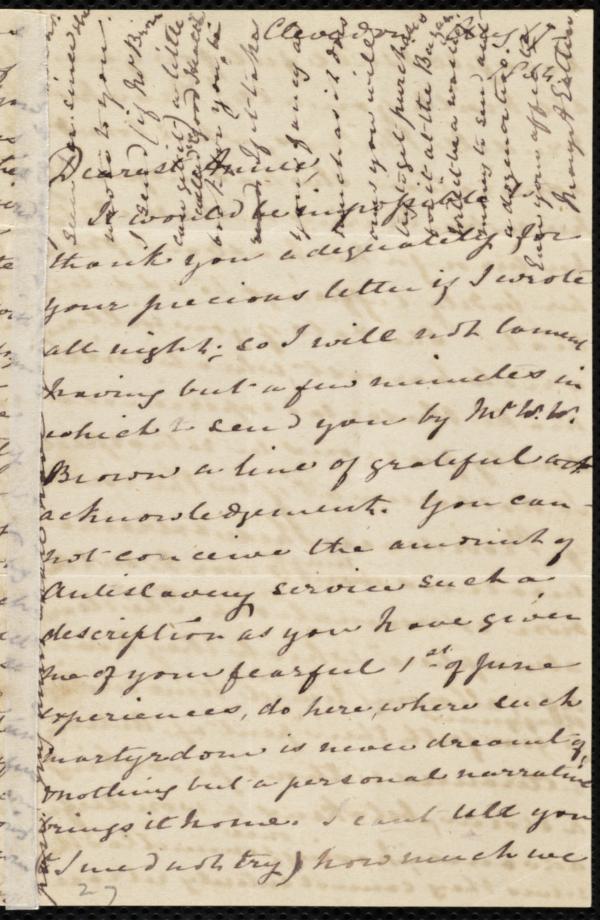 Clevedon
Dearest Anne,
It would be impossible to
thank you adequately for
your precious letter if I wrote
all night; so I will not lament
having but a few minutes in
which to send you by Mr W. W.
Brown a line of grateful
acknowledgement. You can-
not conceive the amount of
Antislavery service such a
description as you have given
me of your fearful 1st of June
experiences, do here, where such
martyrdom is never dreamt of,
nothing but a personal narrative
brings it home. I cant tell you
I need not try) how much we
27
seen her since the
wrote to you.
I send (if Mr Brown
can get it) a little
but
you may fancy a
much as it does
ours you will
try to get purchased
for it at the Bazaar
Ever your affec
Mary A Estlin